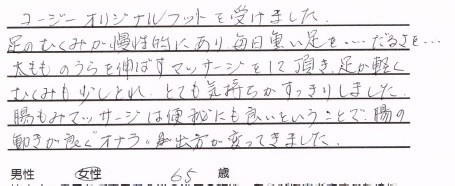 コージーオリジナルフットを受けました。
足のむくみが慢性的にあり毎日重い足を…だるさを…
太もものうらを伸ばすマッサージをして頂き、足が軽く
むくみも少しとれ、とても気持ちがすっきりしました。
腸もみマッサージは便秘にも良いということで、腸の
動きが良く"オナラ"の出方が変ってきました。
男性 女性 65 歳